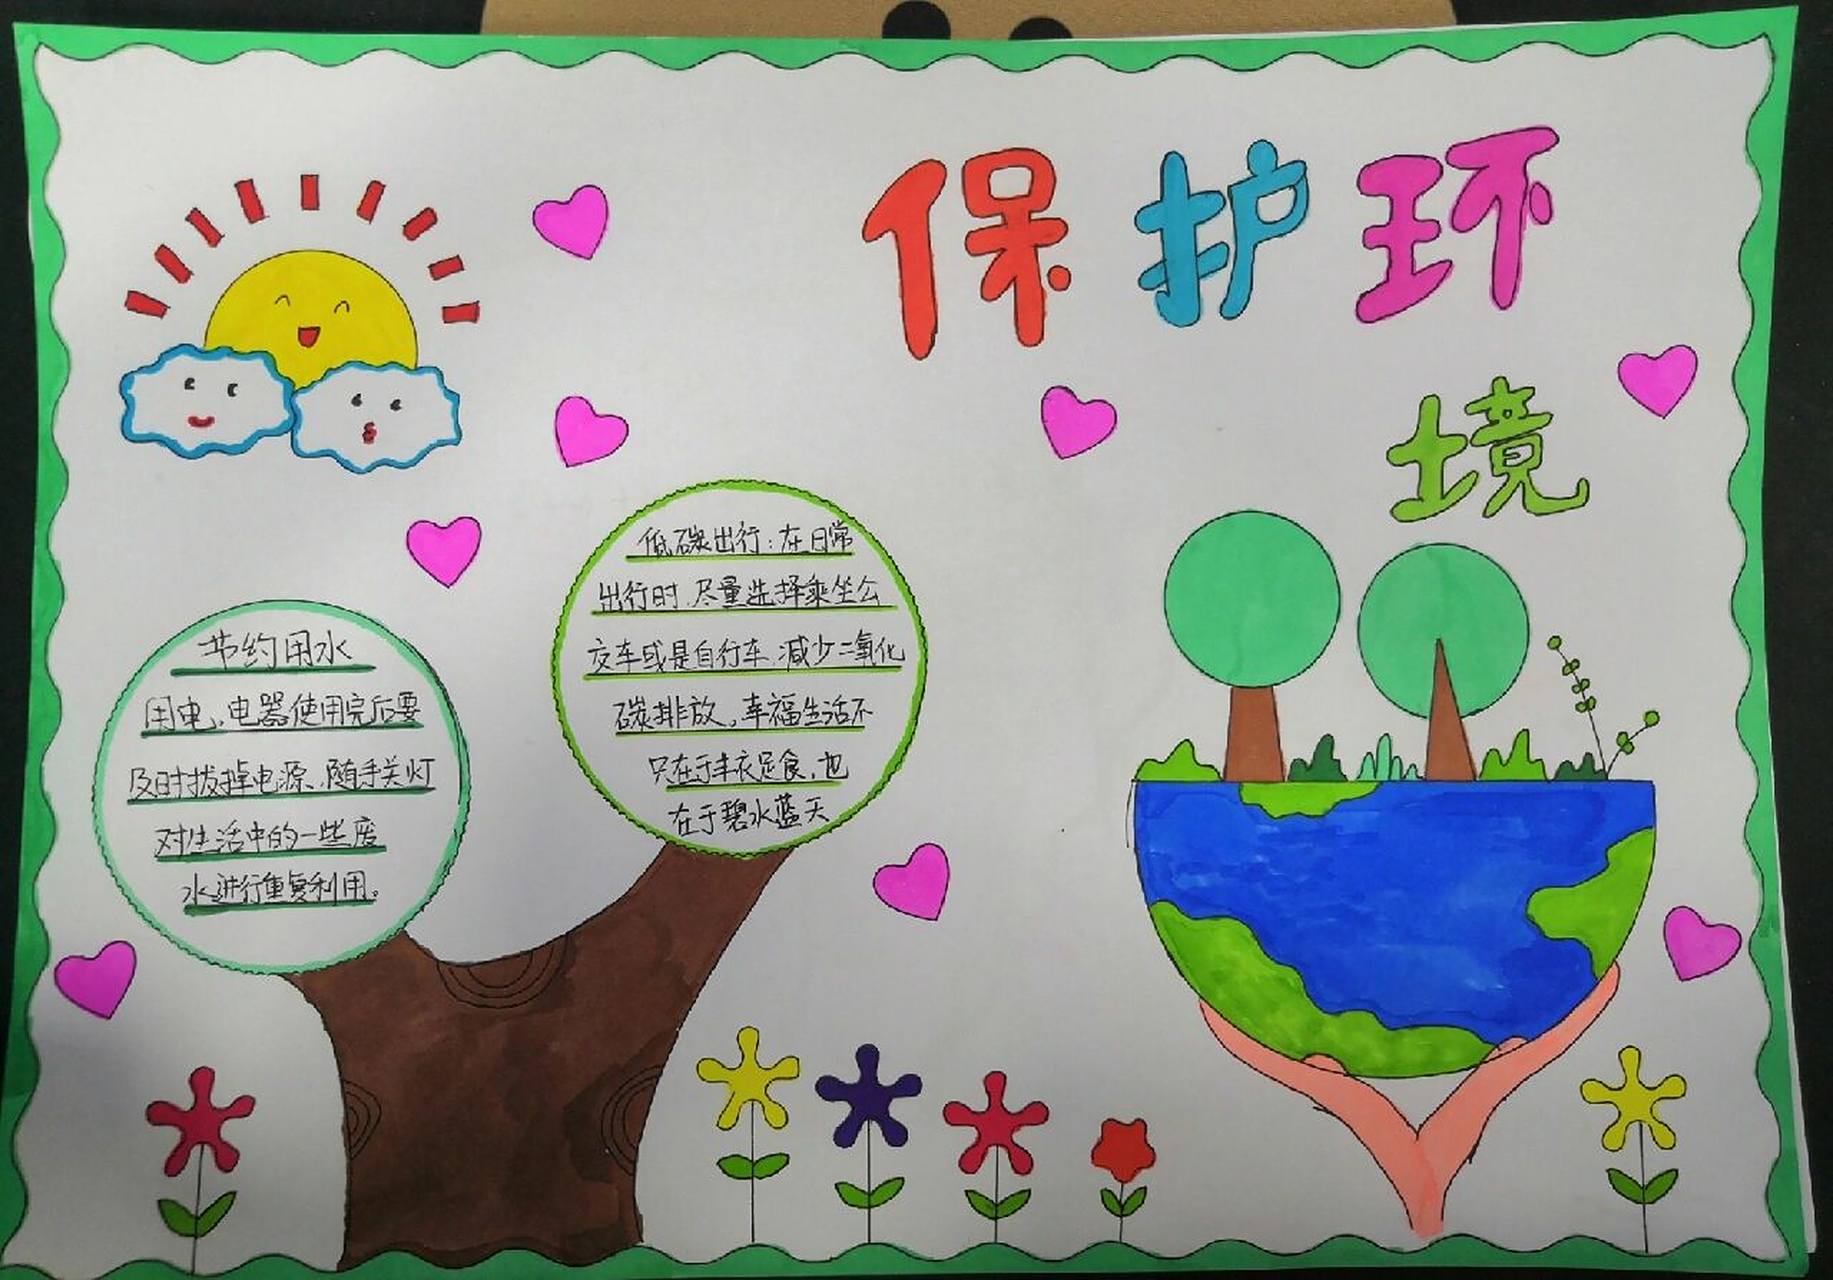 保护环
境
低碳出行:在日常
出行时,尽量选择乘坐公
交车或是自行车,减少二氧化
碳排放,幸福生活不
只在于丰衣足食,也
在于碧水蓝天
节约用水
用电,电器使用完后要
及时拔掉电源、随手关灯
对生活中的一些废
水进行重复利用。